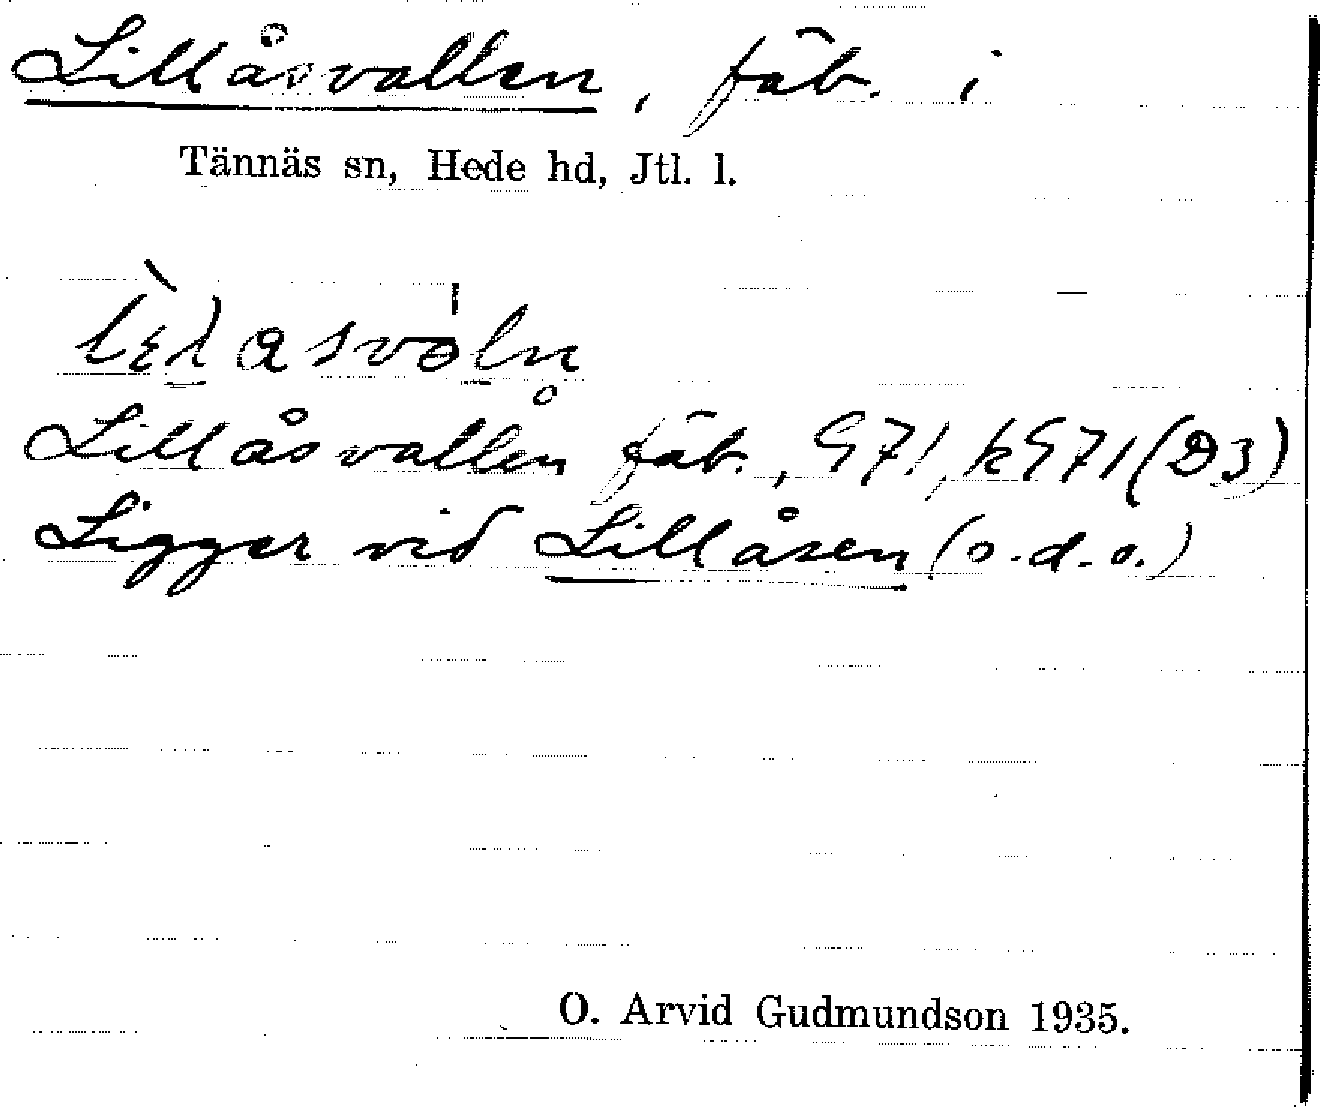 Lillåsvallen, fäb. i
Tännäs sn, Hede hd, Jtl. l.
Lillåsvallen fäb., G71, kG71 (D3)
Ligger vid Lillåsen (o.d.o.)
O. Arvid Gudmundson 1935.